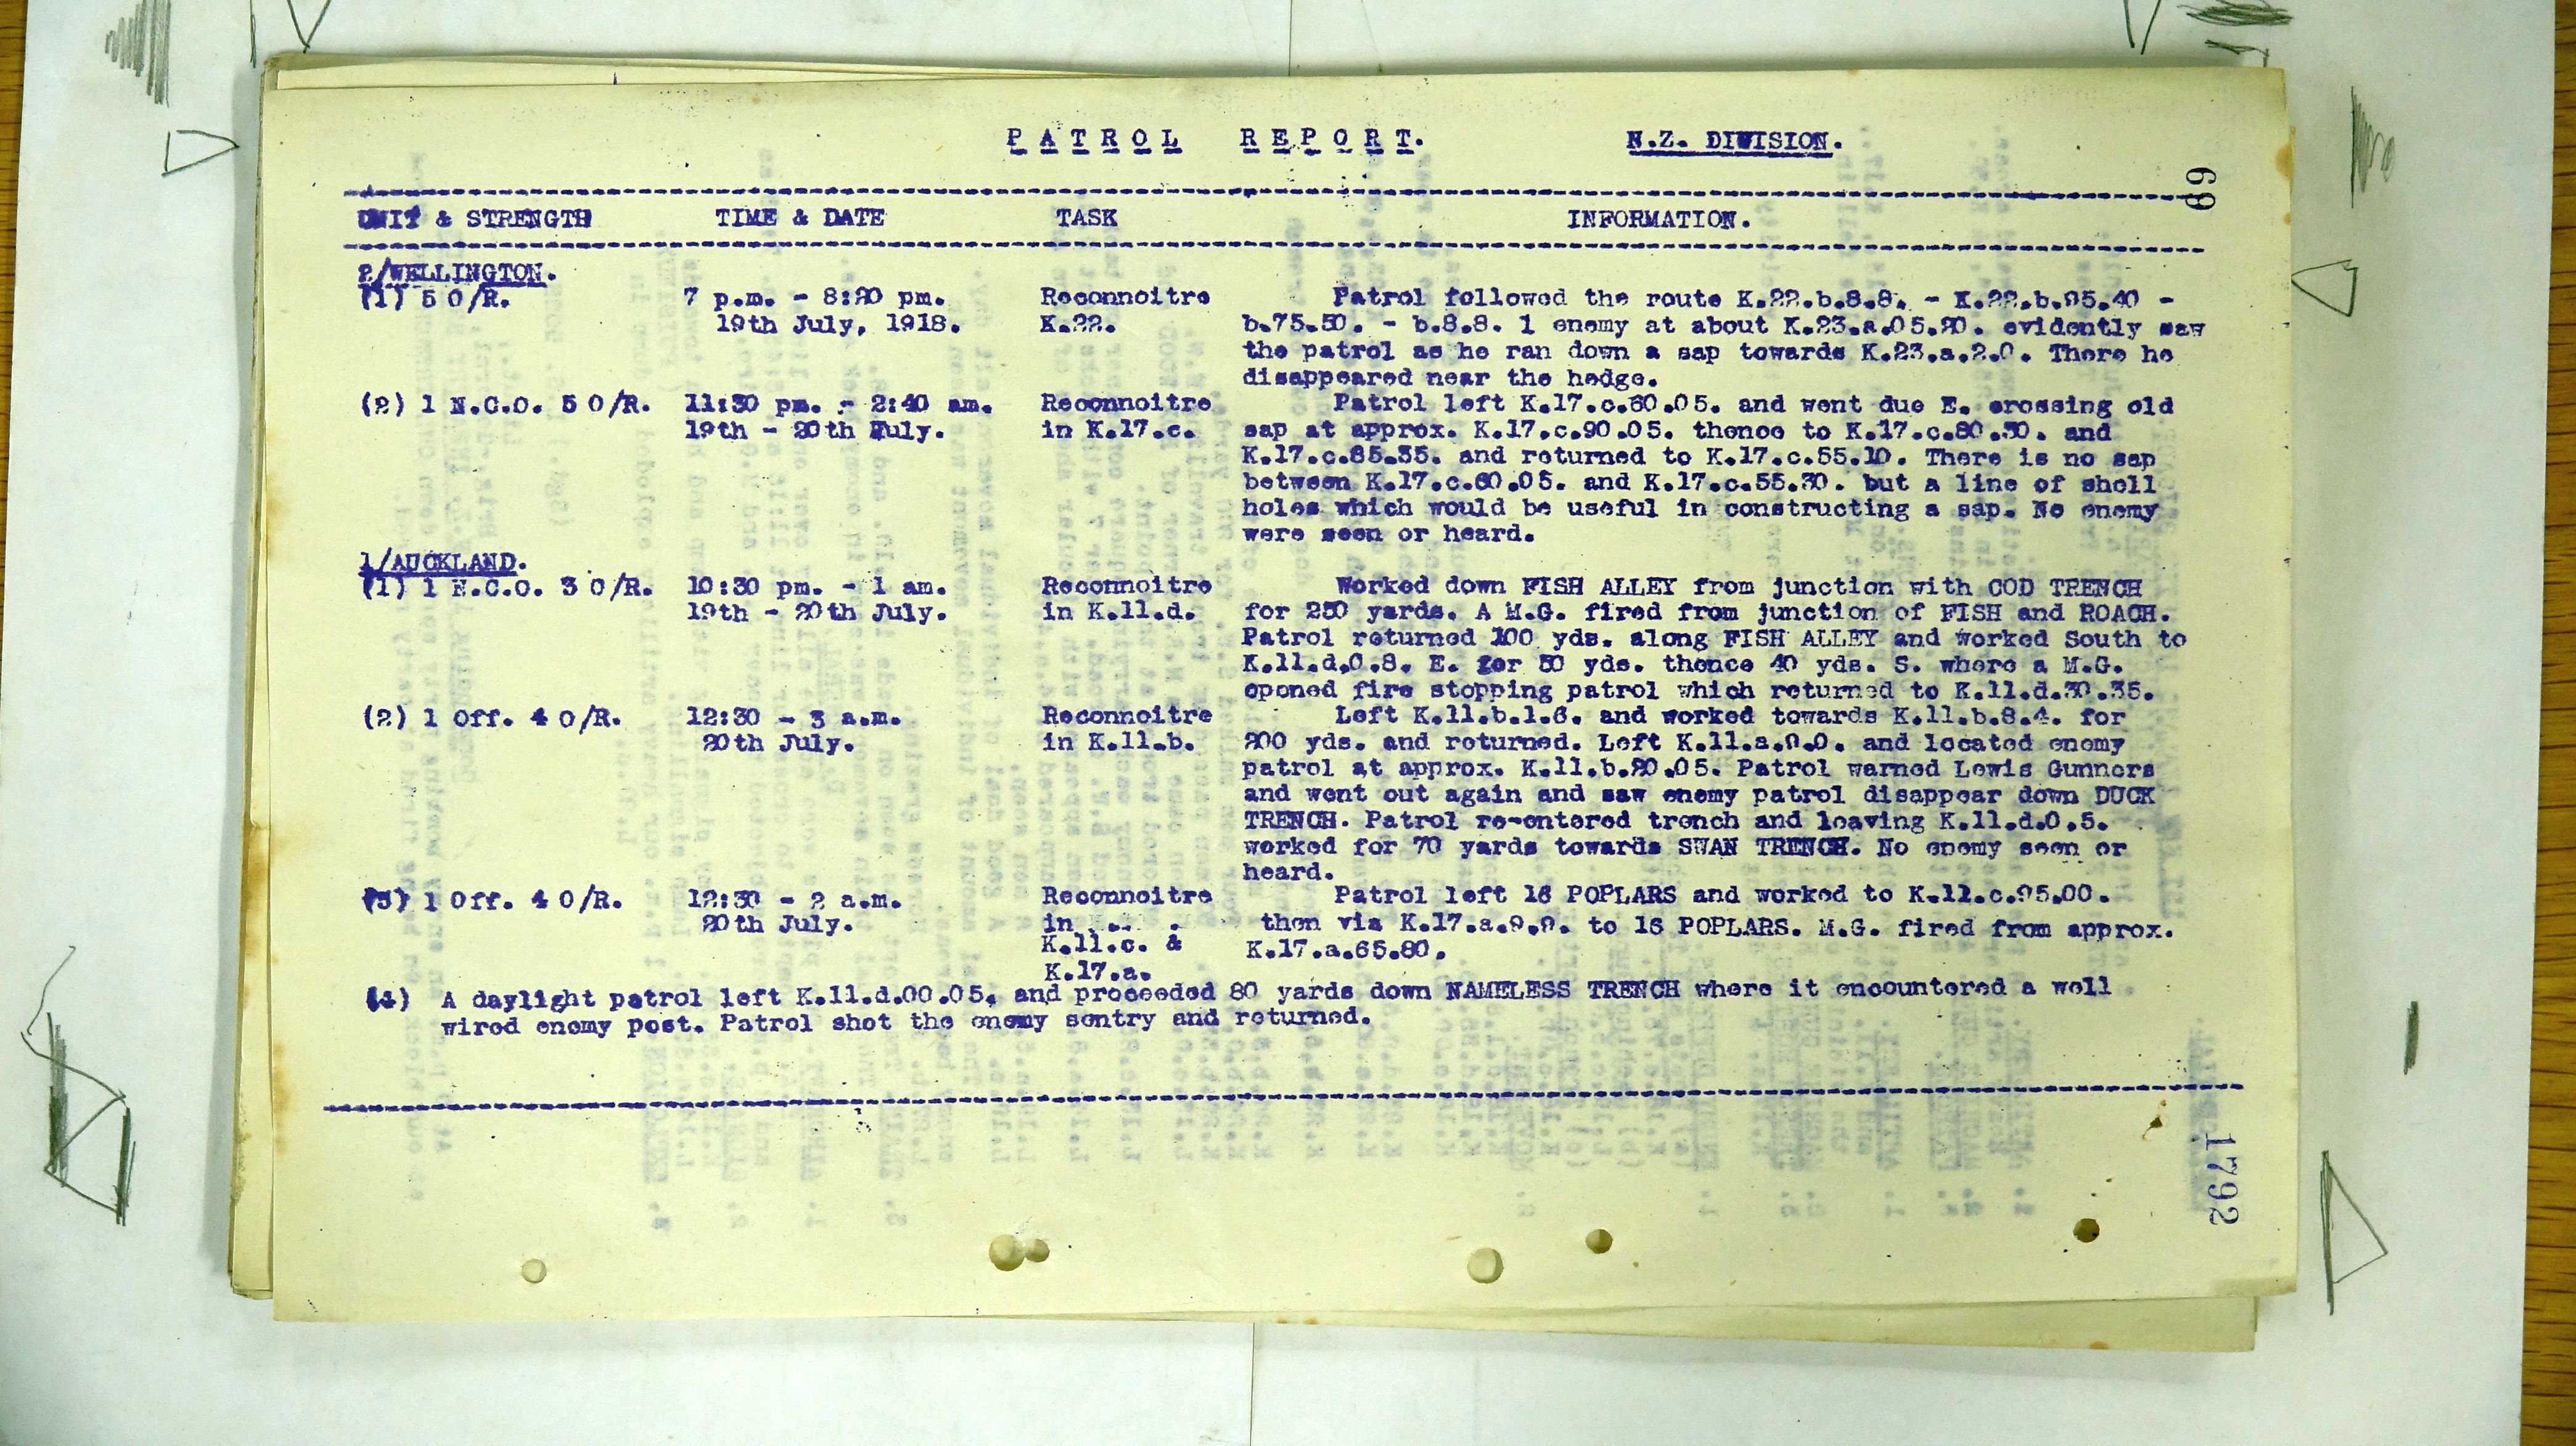 PATROL REPORT. N.Z. DIVISION.
69
UNIT & STRENGTH TIME & DATE TASK INFORMATION.
2/WELLINGTON.
(1) 5 O/R. 7 p.m. - 8:20 pm. Reconnoitre Patrol followed the route K.22.b.8.8. - K.22.b.95.40 -
19th July, 1918. K.22. b.75.50. - b.8.8. 1 enemy at about K.23.a.05.20. evidently saw
the patrol as he ran down a sap towards K.23.a.2.0. There he
disappeared near the hedge.
(2) 1 N.C.O. 5 O/R. 11:30 pm. - 2:40 am. Reconnoitre Patrol left K.17.c.60.05. and went due E. crossing old
19th - 20th July. in K.17.c. sap at approx. K.17.c.90.05. thence to K.17.c.80.30. and
K.17.c.85.35. and returned to K.17.c.55.10. There is no sap
between K.17.c.60.05. and K.17.c.55.30. but a line of shell
holes which would be useful in constructing a sap. No enemy
were seen or heard.
1/AUCKLAND.
(1) 1 N.C.O. 3 O/R. 10:30 pm. - 1 am. Reconnoitre Worked down FISH ALLEY from junction with COD TRENCH
19th - 20th July. in K.11.d. for 250 yards. A M.G. fired from junction of FISH and ROACH.
Patrol returned 100 yds. along FISH ALLEY and worked South to
K.11.d.0.8. E. for 50 yds. thence 40 yds. S. where a M.G.
opened fire stopping patrol which returned to K.11.d.30.35.
(2) 1 Off. 4 O/R. 12:30 - 3 a.m. Reconnoitre Left K.11.b.1.6. and worked towards K.11.b.8.4. for
20th July. in K.11.b. 200 yds. and returned. Left K.11.a.9.0. and located enemy
patrol at approx. K.11.b.20.05. Patrol warned Lewis Gunners
and went out again and saw enemy patrol disappear down DUCK
TRENCH. Patrol re-entered trench and leaving K.11.d.0.5.
worked for 70 yards towards SWAN TRENCH. No enemy seen or
heard.
(3) 1 Off. 4 O/R. 12:30 - 2 a.m. Reconnoitre Patrol left 16 POPLARS and worked to K.11.c.95.00.
20th July. in then via K.17.a.9.9. to 16 POPLARS. M.G. fired from approx.
K.11.c. & K.17.a.65.80.
K.17.a.
(4) A daylight patrol left K.11.d.00.05. and proceeded 80 yards down NAMELESS TRENCH where it encountered a well
wired enemy post. Patrol shot the enemy sentry and returned.
1792